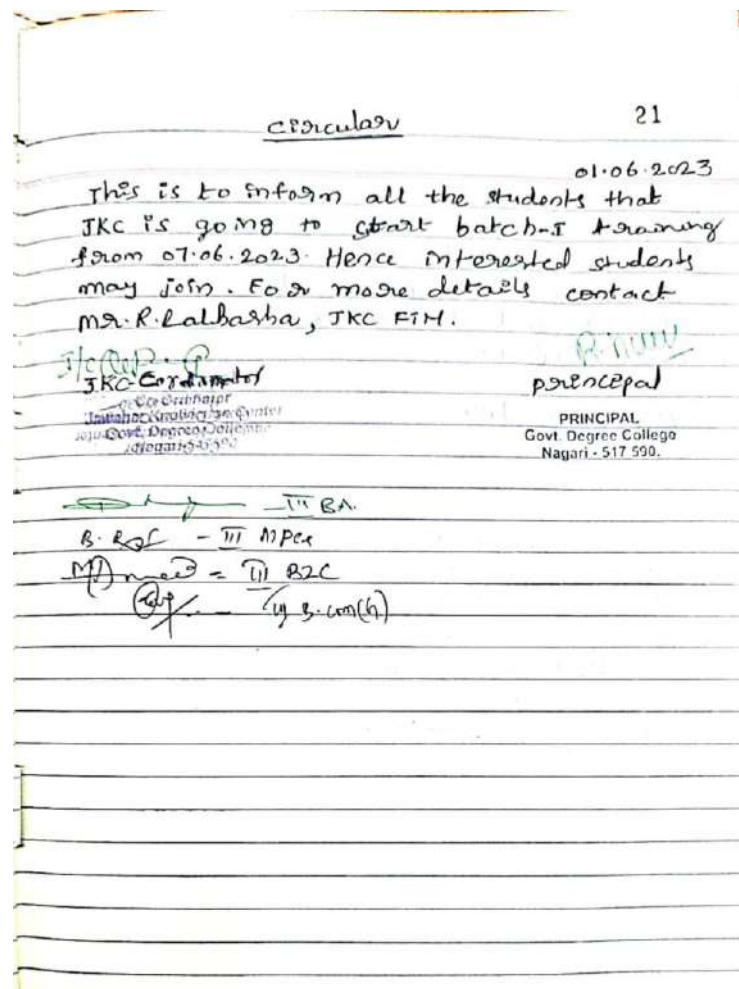 21
circular
01.06.2023
This is to inform all the students that
JKC is going to start batch-I training
from 07.06.2023. Hence interested students
may join. For more details contact
Mr. R. Lalbasha, JKC FTM.
JKC-Cordinator
principal
PRINCIPAL
Govt. Degree College
Nagari - 517 590.
Govt. Degree College
- III BA.
- III MPCs
= III BZC
- III B.com(G)